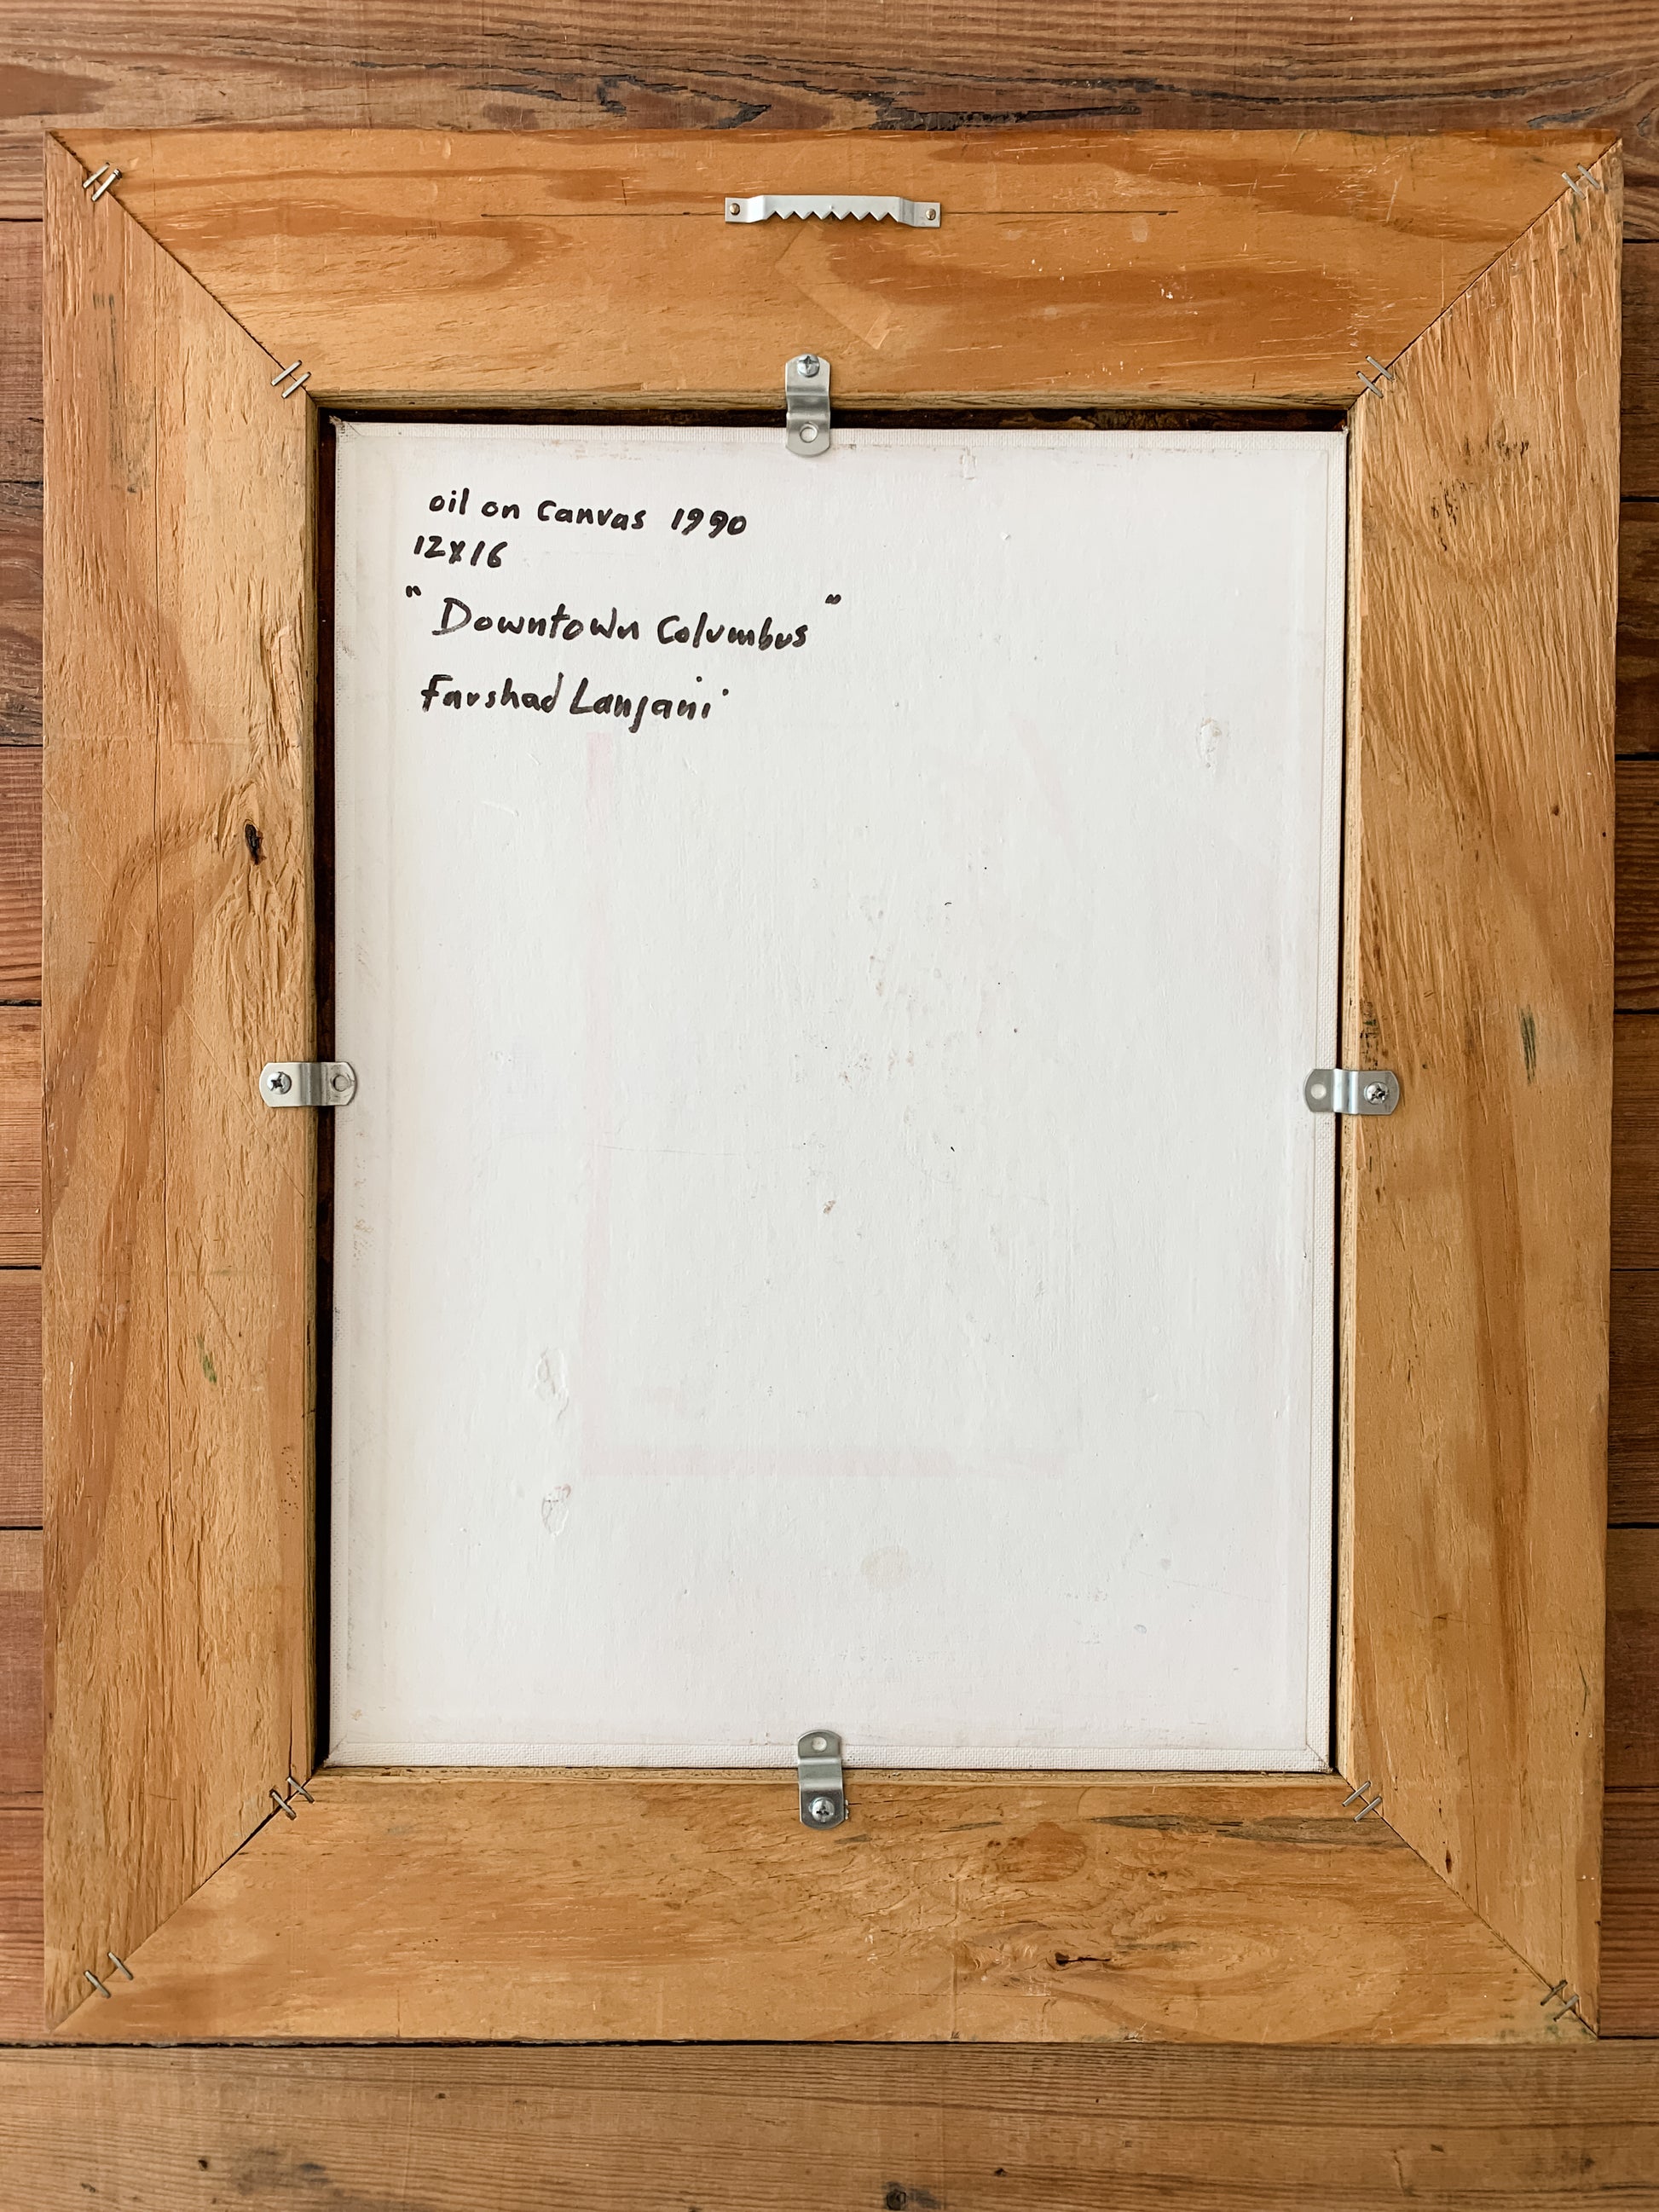 oil on Canvas 1990
12x16
"Downtown Columbus"
Farshad Lanjani